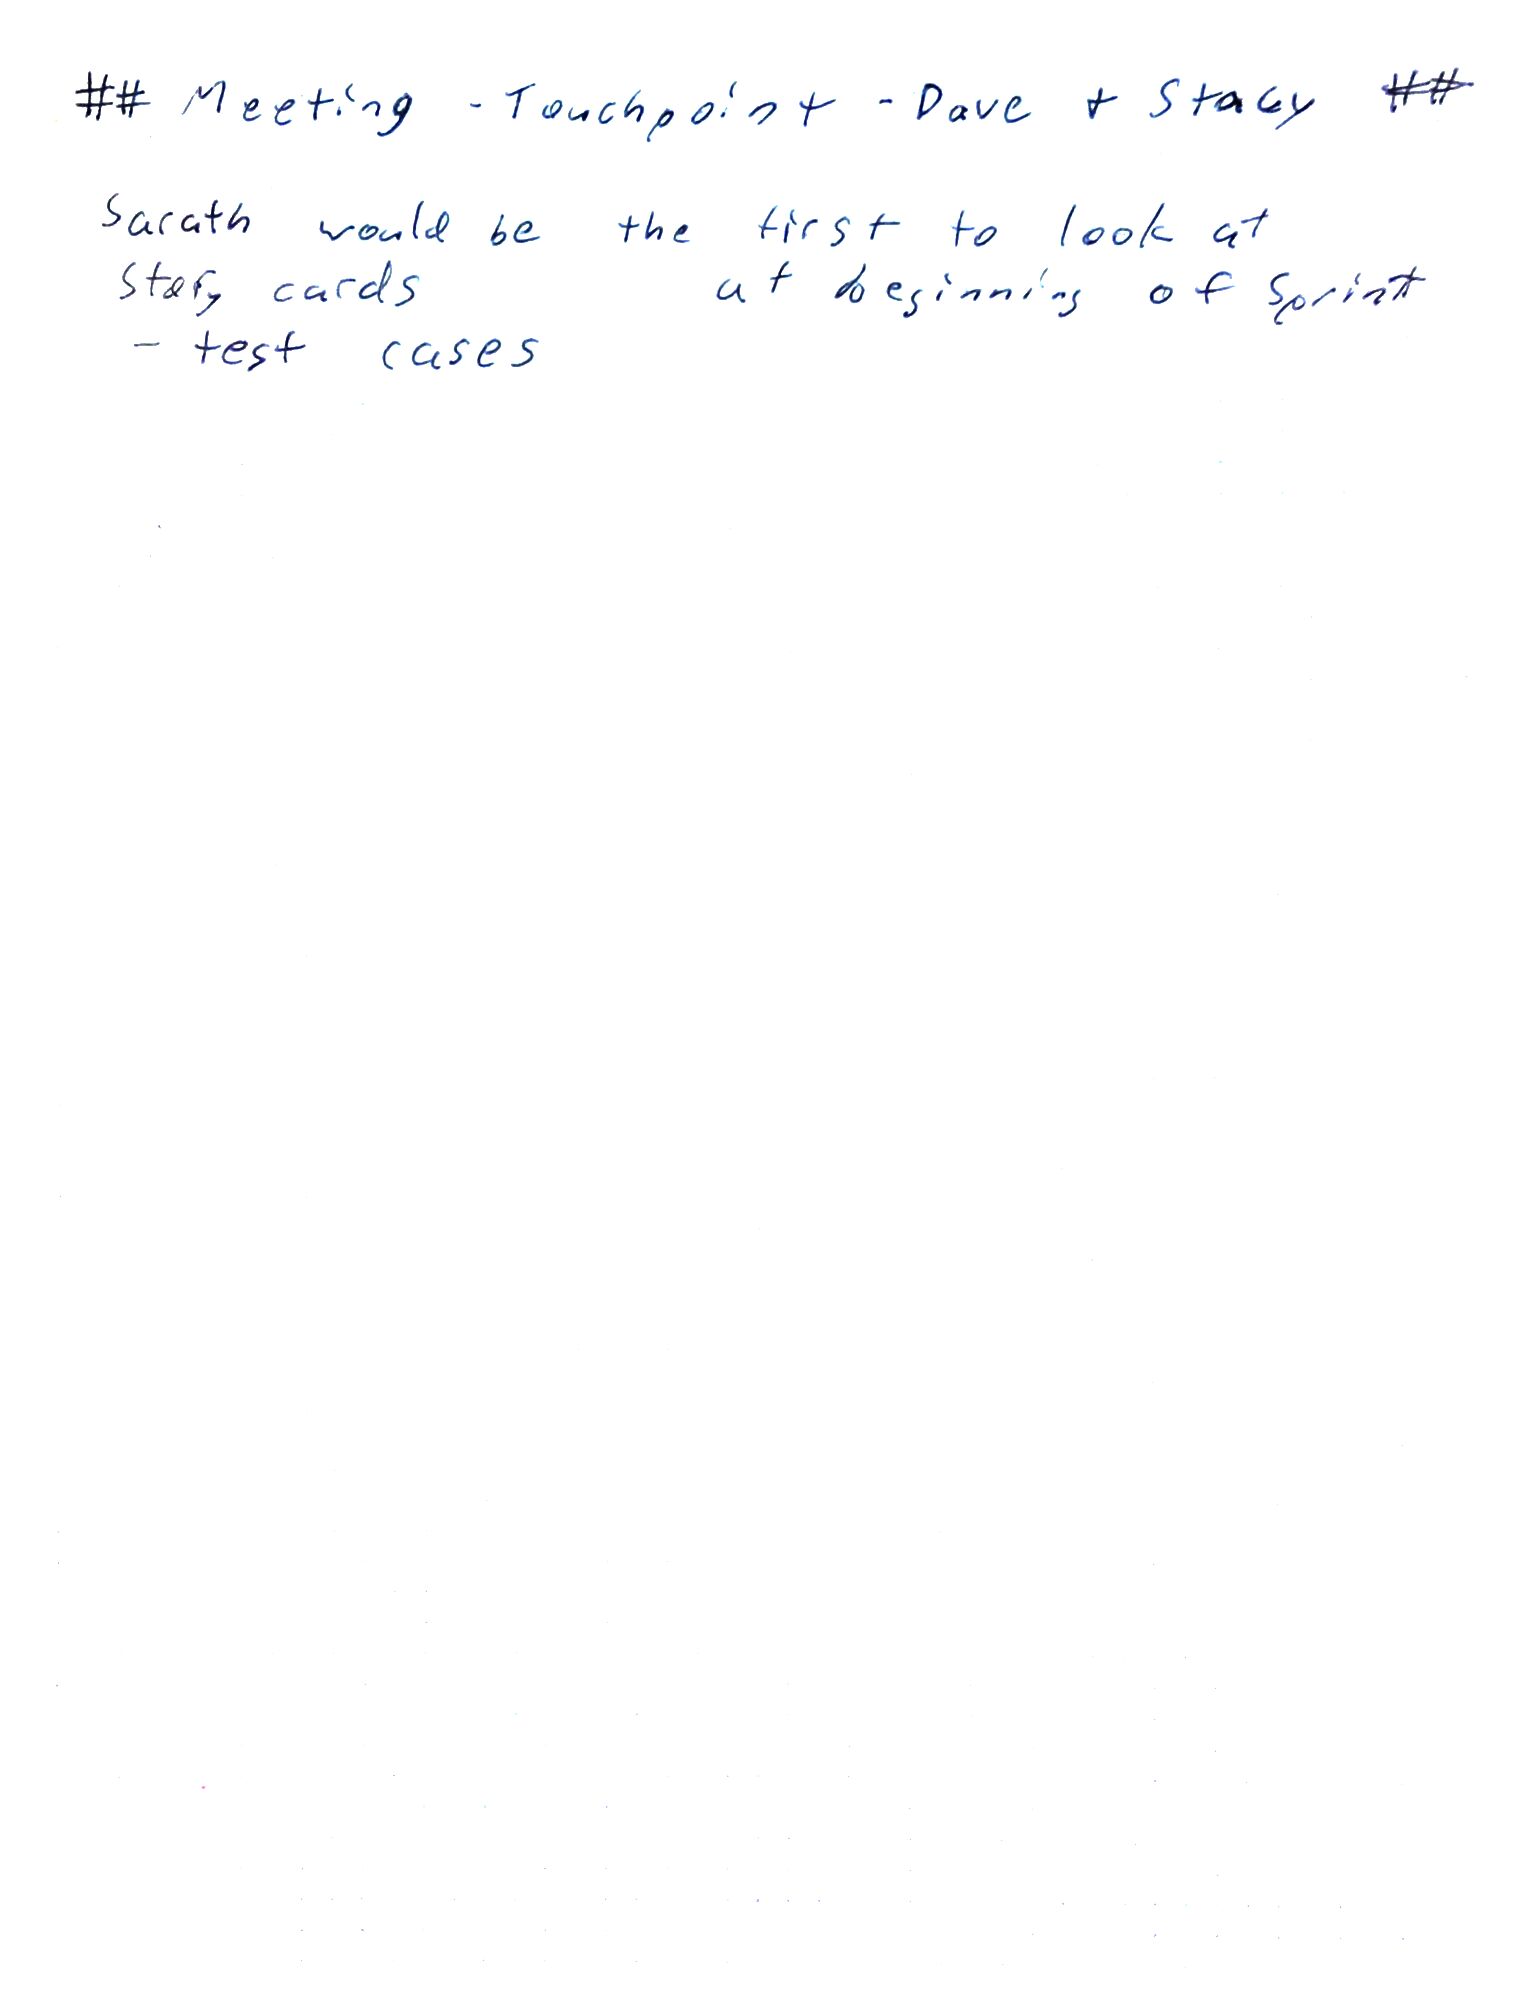 ## Meeting - Touchpoint - Dave + Stacy ##
Sarath would be the first to look at
story cards at beginning of sprint
- test cases